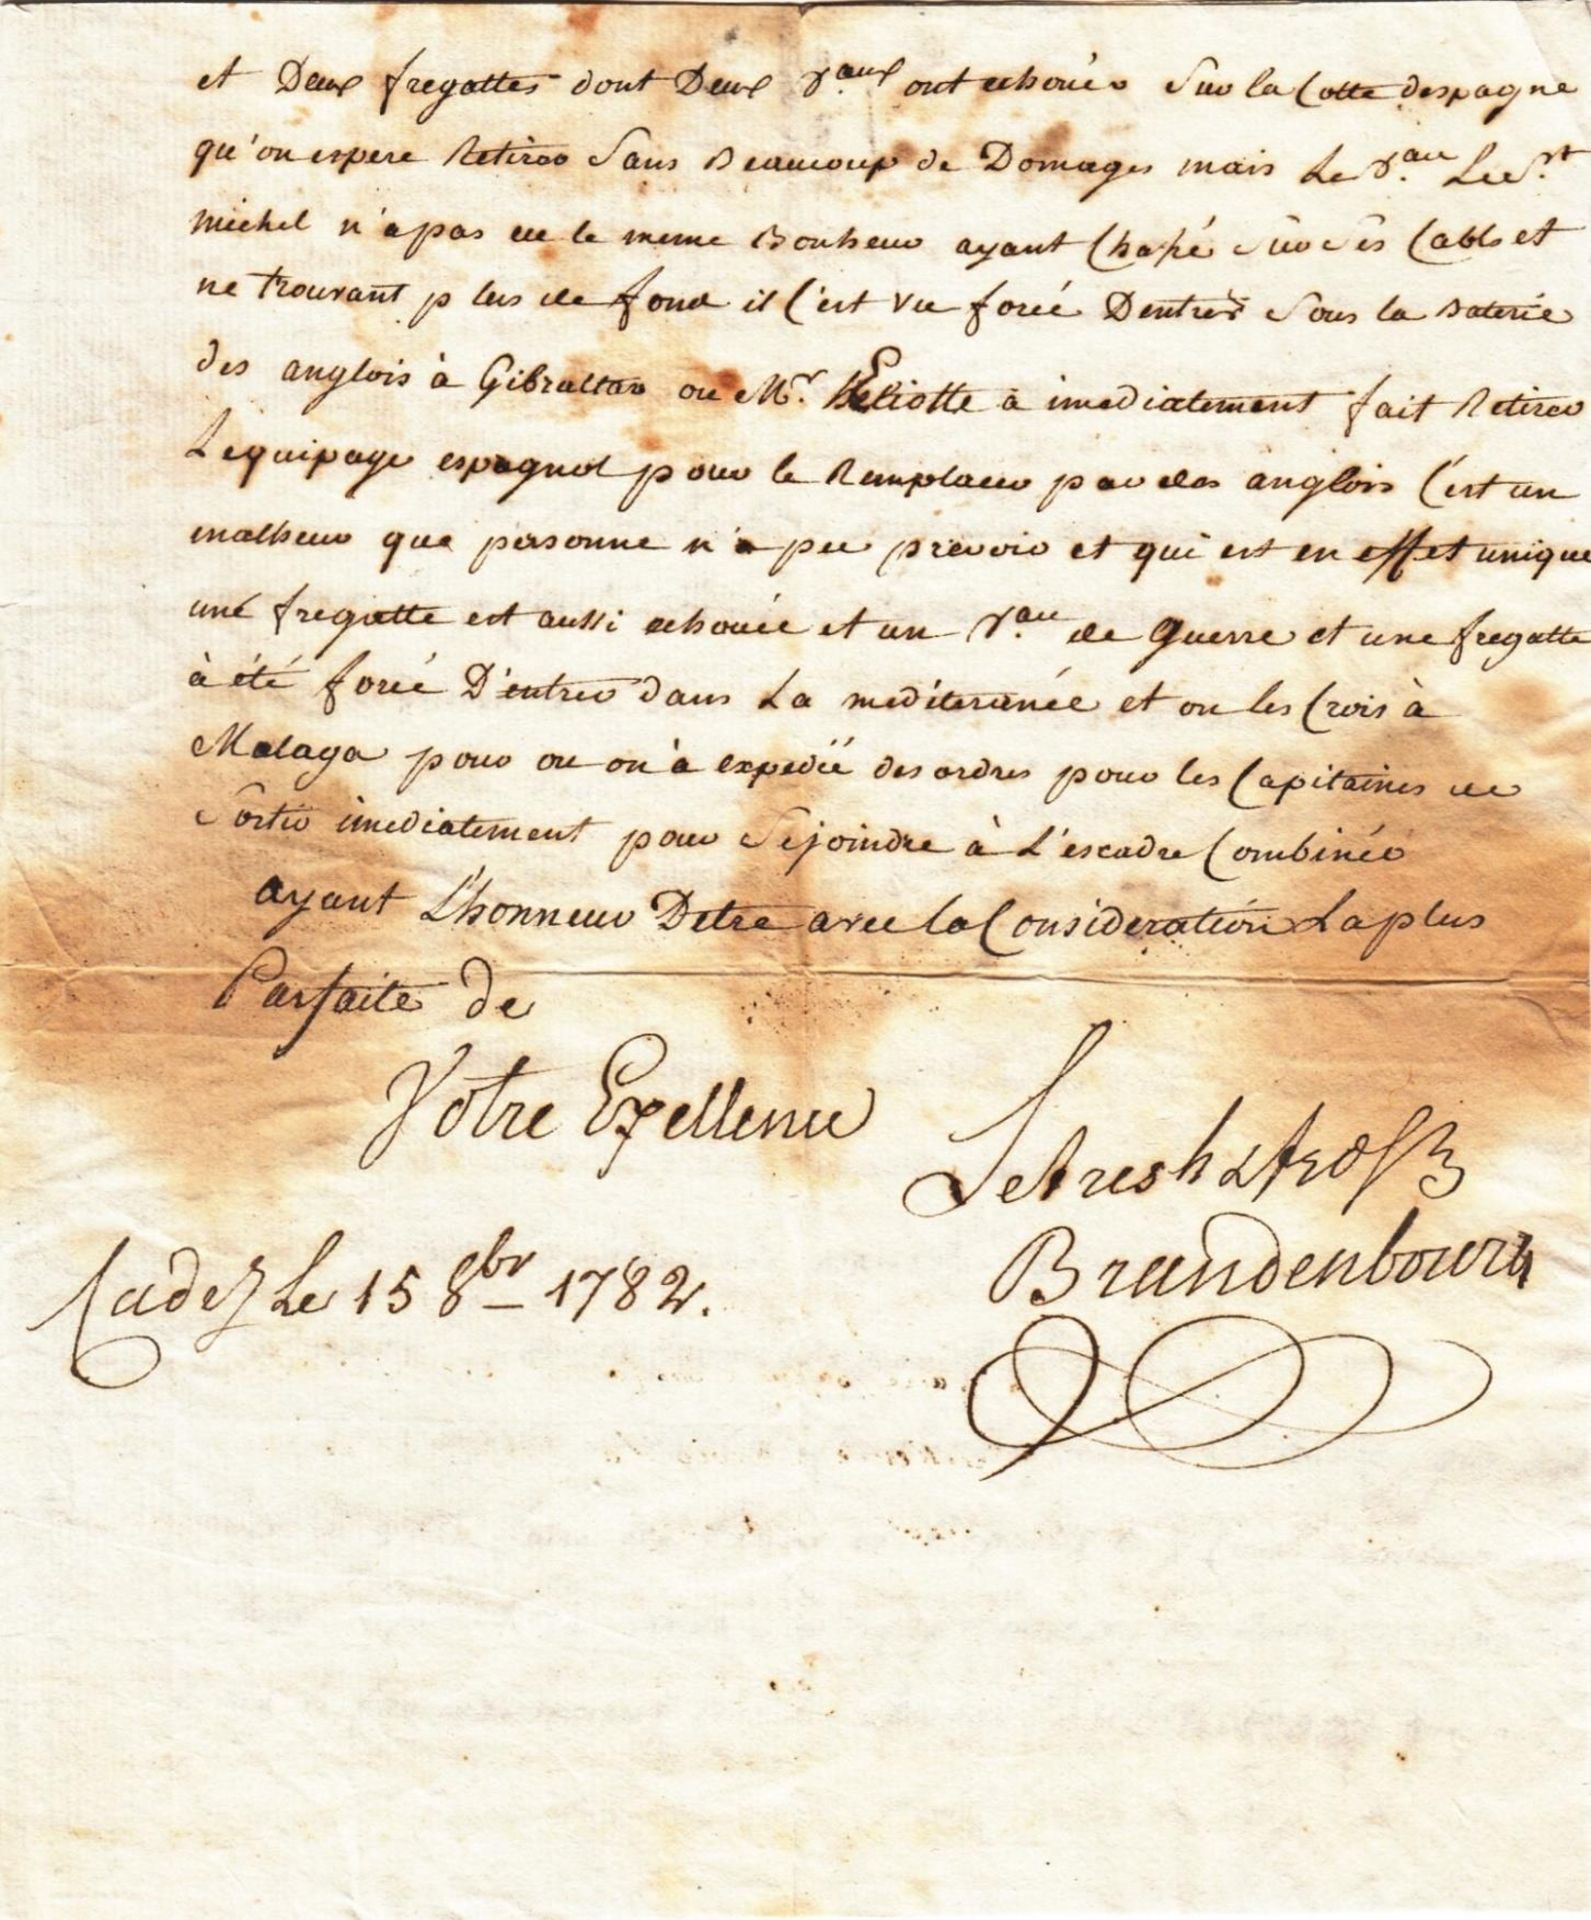 et Deux fregattes dont Deux V.aux ont echouéo Sur la Cotte despagne
qu'on espere Retirer Sans Beaucoup de Domages mais Le V.au Le S.t
michel n'a pas eu le meme Bonheur ayant Chapé Sur Ses Cables et
ne trouvant plus de fond il C'est vu forcé Dentrer Sous la Baterie
des anglois à Gibraltar ou Mr. Eliotte a imediatement fait Retirer
Lequipage espagnol pour le Remplacer par des anglois C'est un
malheur que personne n'a pu prevoir et qui est en effet unique
une fregatte est aussi echouée et un V.au de guerre et une fregatte
à été forcé D'entrer dans La mediteranée et on les Crois à
Malaga pour ou on à expedié des ordres pour les Capitaines de
Sortir imediatement pour Sejoindre à L'escadre Combinée
ayant L'honneur Detre avec la Consideration La plus
Parfaite de
Votre Exellence
Cadez Le 15 8br 1782.
Brandenbourg